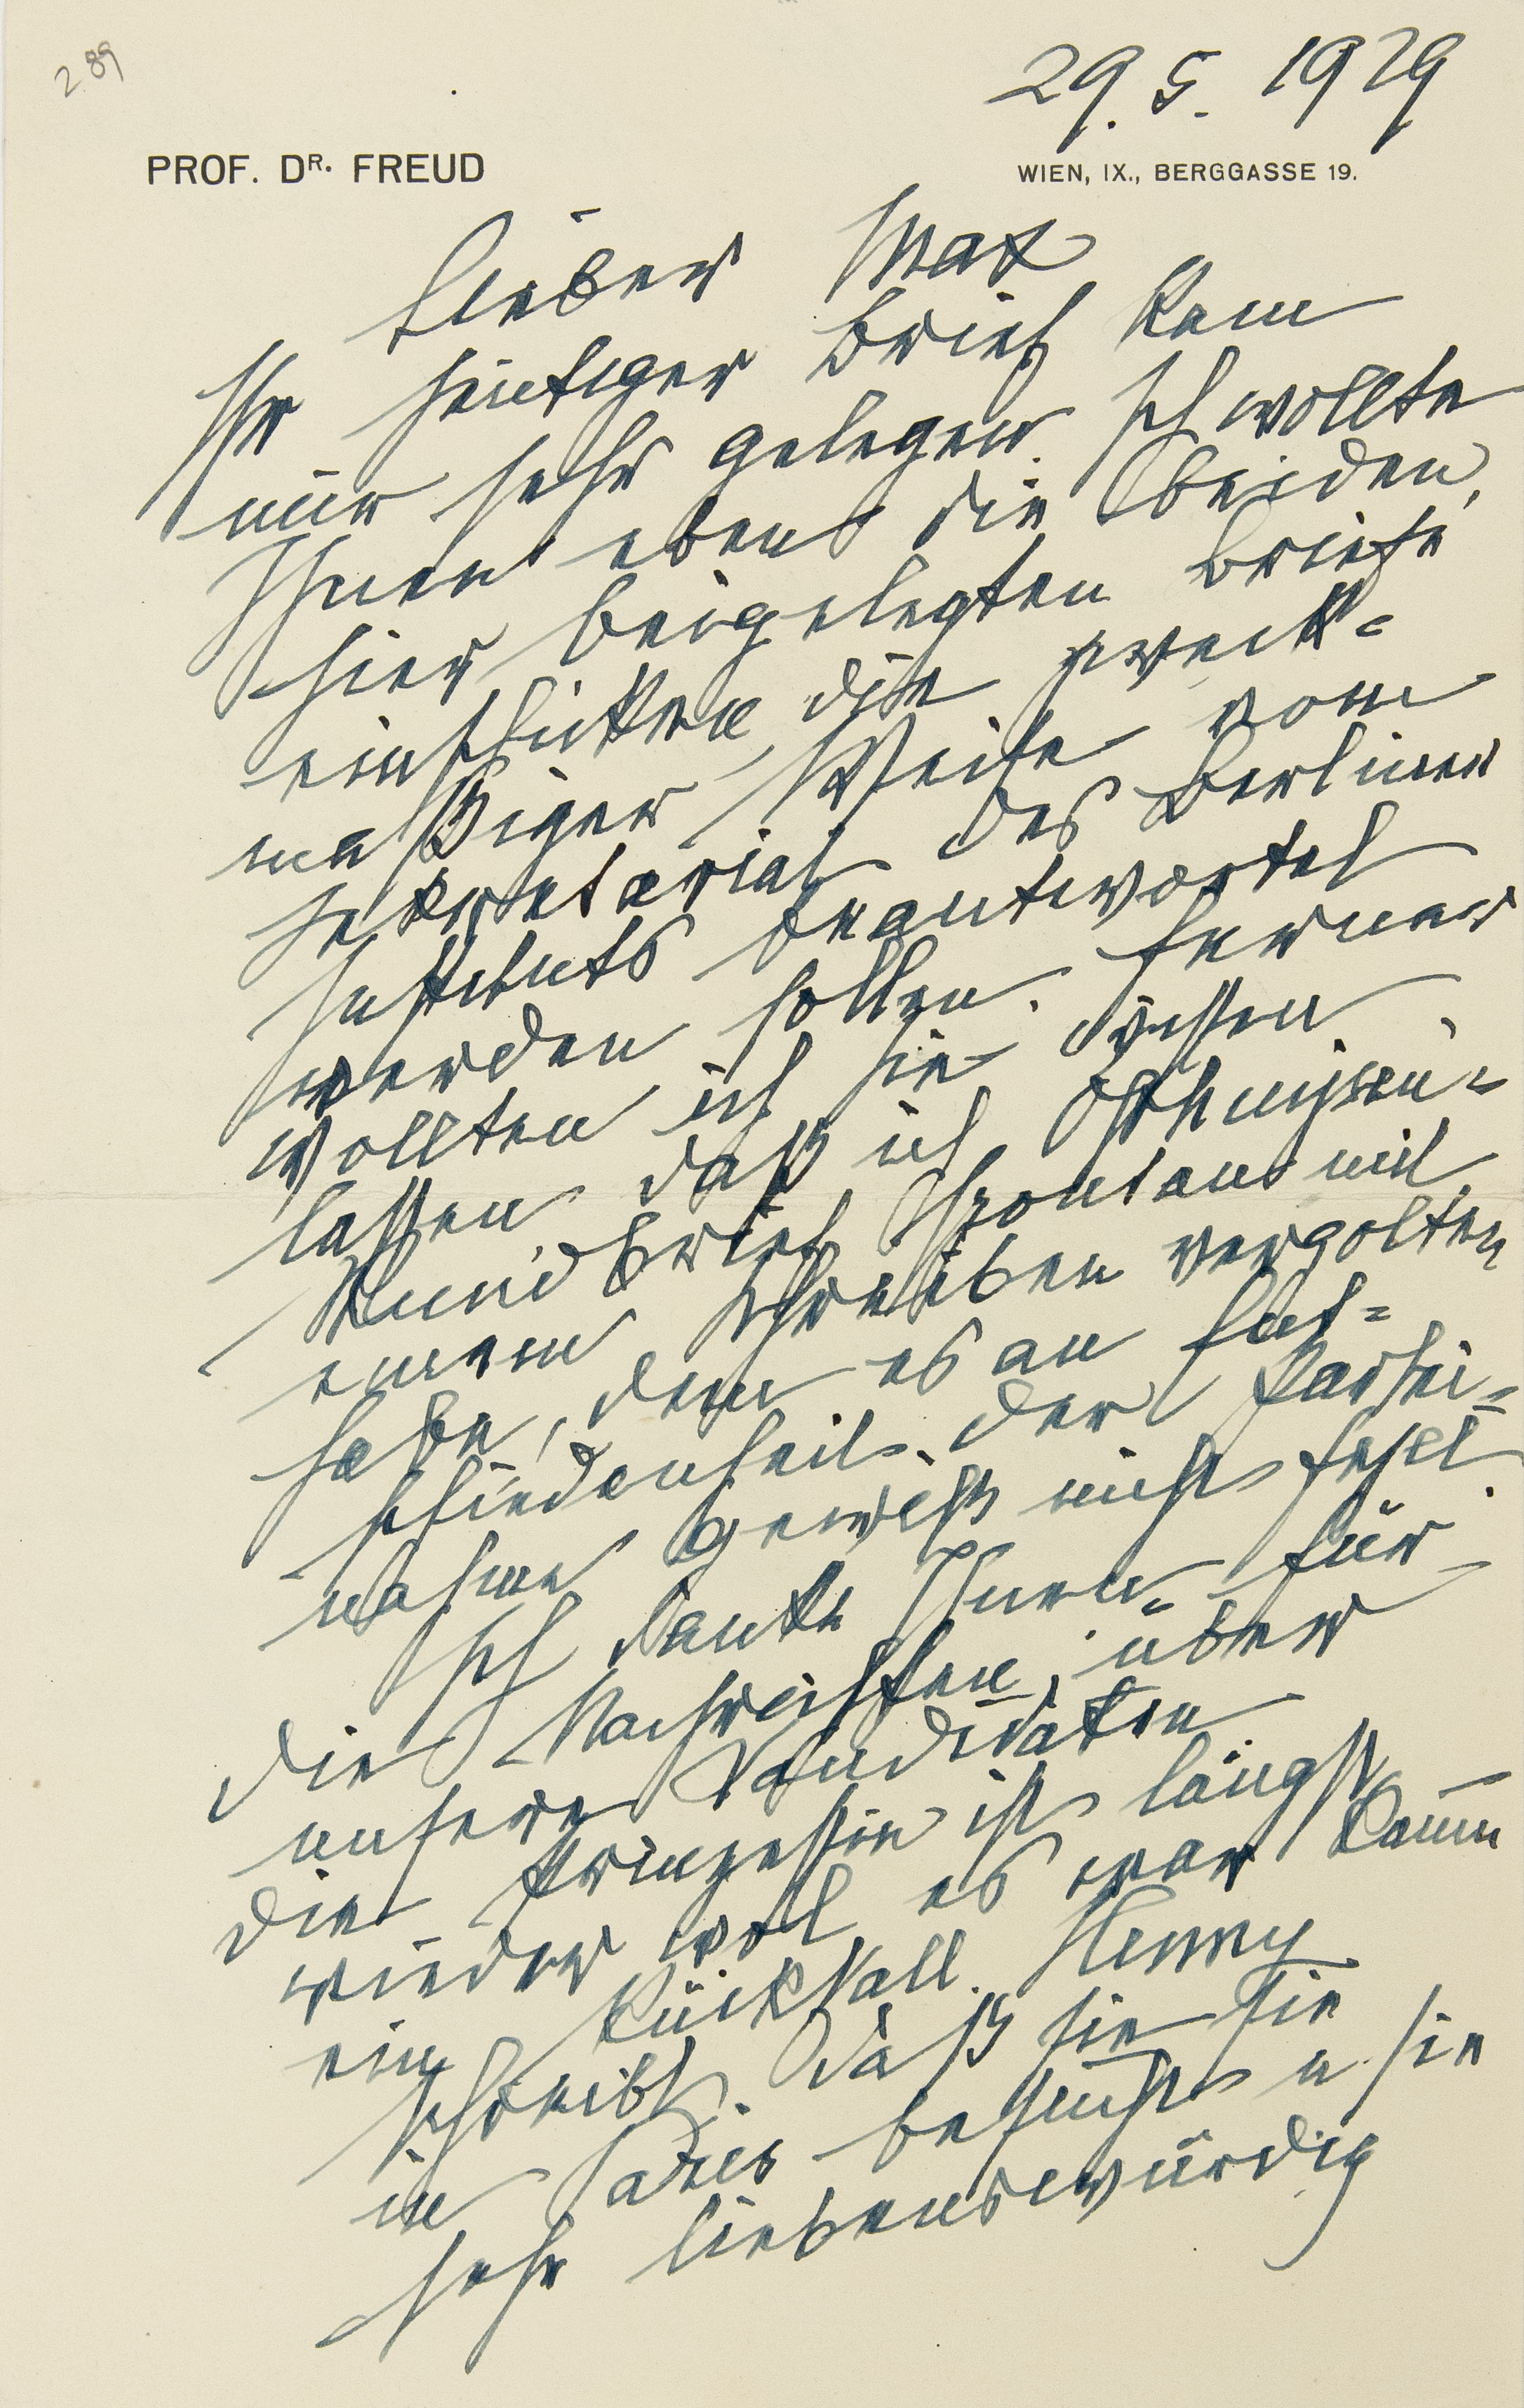 289
29. 5. 1929
PROF. DR. FREUD
WIEN, IX., BERGGASSE 19.
Lieber Max
Ihr heutiger Brief kam
mir sehr gelegen. Ich wollte
Ihnen eben die beiden,
hier beigelegten Briefe
einschicken die zweck=
mäßiger Weise vom
Sekretariat des Berliner
Instituts beantwortet
werden sollen. Ferner
wollten ich Sie wissen
lassen, daß ich
Rundbrief spontan mit
einem Schreiben vergolten
habe, dem es an Ent=
schiedenheit der Partei=
nahme gewiß nicht fehlt.
Ich danke Ihnen für
die Nachrichten über
unsere Kandidaten
Die Prinzessin ist längst
wieder wol es war kaum
ein Rückfall. Henny
schreibt, daß sie Sie
in Paris besucht u sie
sehr liebenswürdig